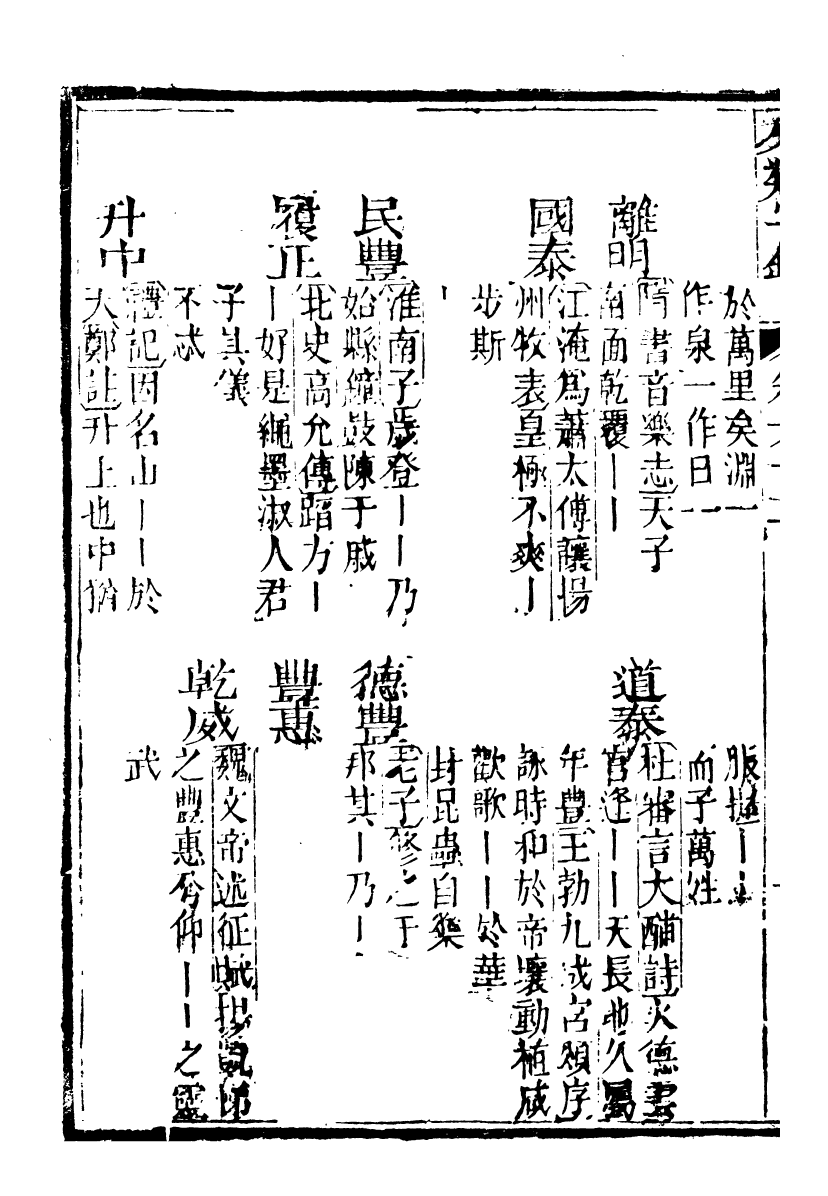 於萬里矣淵一
作泉一作日一
離明
隋書音樂志天子
南面乾覆｜｜
國泰
江淹爲蕭太傅讓揚
州牧表皇極不爽｜
步斯
｜
民豐
淮南子歲登｜｜乃
始縣鐘鼓陳于戚
履正
北史高允傳蹈方｜
｜好是繩墨淑人君
子其儀
不忒
升中
禮記因名山｜｜於
天鄭註升上也中猶
服｜｜
而子萬姓
道泰
杜審言大酺詩火德書
官逢｜｜天長地久屬
年豐王勃九成宮頌序
詠時和於帝壤動植咸
歡歌｜｜於華
封昆蟲自樂
德豐
老子修之于
邦其｜乃｜
豐惠
乾威
魏文帝述征賦揚凱悌
之豐惠兮仰｜｜之靈
武